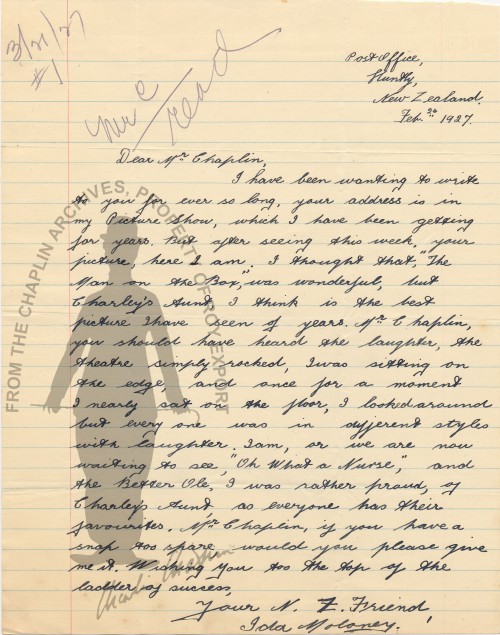 3/21/27
#1
read
Post Office,
Huntly,
New Zealand.
Feb. 1927.
Dear Mr Chaplin,
I have been wanting to write
to you for ever so long, your address is in
my Picture Show, which I have been getting
for years. But after seeing this week, your
picture, here I am. I thought that, "The
Man on the Box," was wonderful, but
Charley's Aunt, I think is the best
picture I have seen of years. Mr Chaplin,
you should have heard the laughter, the
theatre simply rocked, I was sitting on
the edge, and once for a moment
I nearly sat on the floor, I looked around
but every one was in different styles
with laughter. I am, or we are now
waiting to see, "Oh What a Nurse", and
the Better Ole, I was rather proud, of
Charley's Aunt, as everyone has their
favourites. Mr Chaplin, if you have a
snap too spare would you please give
me it. Wishing you too the top of the
ladder of success,
Your N. Z. Friend,
Ida Moloney.
FROM THE CHAPLIN ARCHIVES, PROPERTY OF ROY EXPORT